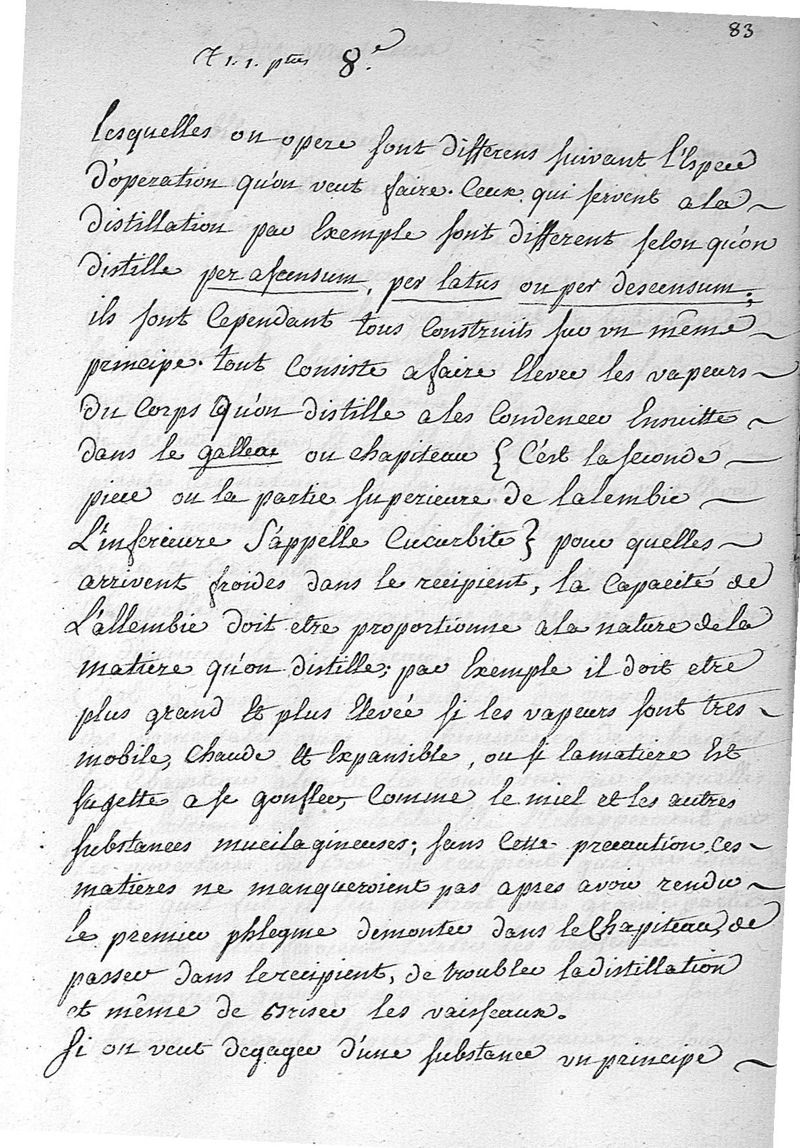 83
8.e
lesquelles on opere sont differens suivant l'Espece
d'operation qu'on veut faire. Ceux qui servent a la
distillation par Exemple sont different selon qu'on
distille per ascensum, per latus ou per descensum;
ils sont Cependant tous Construits sur un même
principe. tout Consiste a faire Elever les vapeurs
du Corps qu'on distille a les Condencer Ensuitte
dans le galleae ou chapiteau { C'est la seconde
piece ou la partie superieure de lalembic
L'inferieure S'appelle Cucurbite } pour quelles
arrivent froides dans le recipient, la Capacité de
L'allembic doit etre proportionne a la nature de la
matiere qu'on distille; par Exemple il doit etre
plus grand Et plus Elevée si les vapeurs sont tres
mobile, Chaude Et Expansible, ou si la matiere Est
sugette a se gonfler, Comme le miel et les autres
substances mucilagineuses; sans Cette precaution Ces
matieres ne manqueroient pas apres avoir rendu
le premier phlegme demonter dans le Chapiteau, de
passer dans le recipient, de troubler la distillation
et même de briser les vaisseaux.
Si on veut degager d'une substance un principe